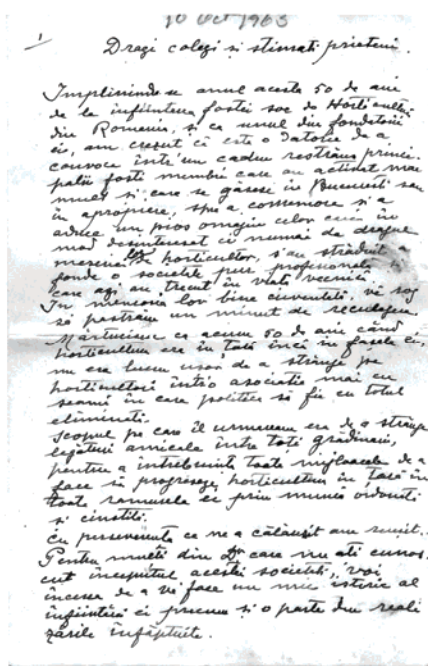 10 Oct 1963
1
Dragi colegi și stimati prieteni.
Implinindu-se anul acesta 50 de ani
de la infiintarea fostei soc. de Horticultură
din Romania, și ca unul din fondatorii
ei, am crezut că este o datorie de a
convoca intr'un cadru restrâns princi-
palii foști membri care au activat mai
mult și care se găsesc in Bucuresti sau
in apropiere, spre a comemora și a
aduce un pios omagiu celor care in
mod desinteresat ci numai de dragul
meseriei de horticultor, s'au străduit a
fonda o societate pur profesionala
care azi au trecut in viata vecinică
In memoria lor bine cuvântată, vă rog
să pastrăm un minut de reculegere
Mărturisesc ca acum 50 de ani când
horticultura era in țară incă in fasele ei,
nu era lucru usor de a strânge pe
horticultori intr'o asociatie mai cu
seamă in care politica să fie cu totul
eliminată.
Scopul pe care il urmaream era de a strânge
legături amicale intre toți grădinarii,
pentru a intrebuința toate mijloacele de a
face să progreseze horticultura in țară in
toate ramurele ei prin munca ordonată
și cinstită.
Cu perseverenta ce ne a călăuzit am reusit.
Pentru multi din Dv care nu ati cunos-
cut inceputul acestei societăti, voi
incerca de a vă face un mic istoric al
infiintării ei precum și o parte din reali
zările infăptuite.